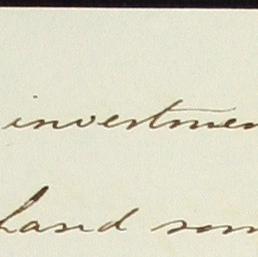 investmen
hand som